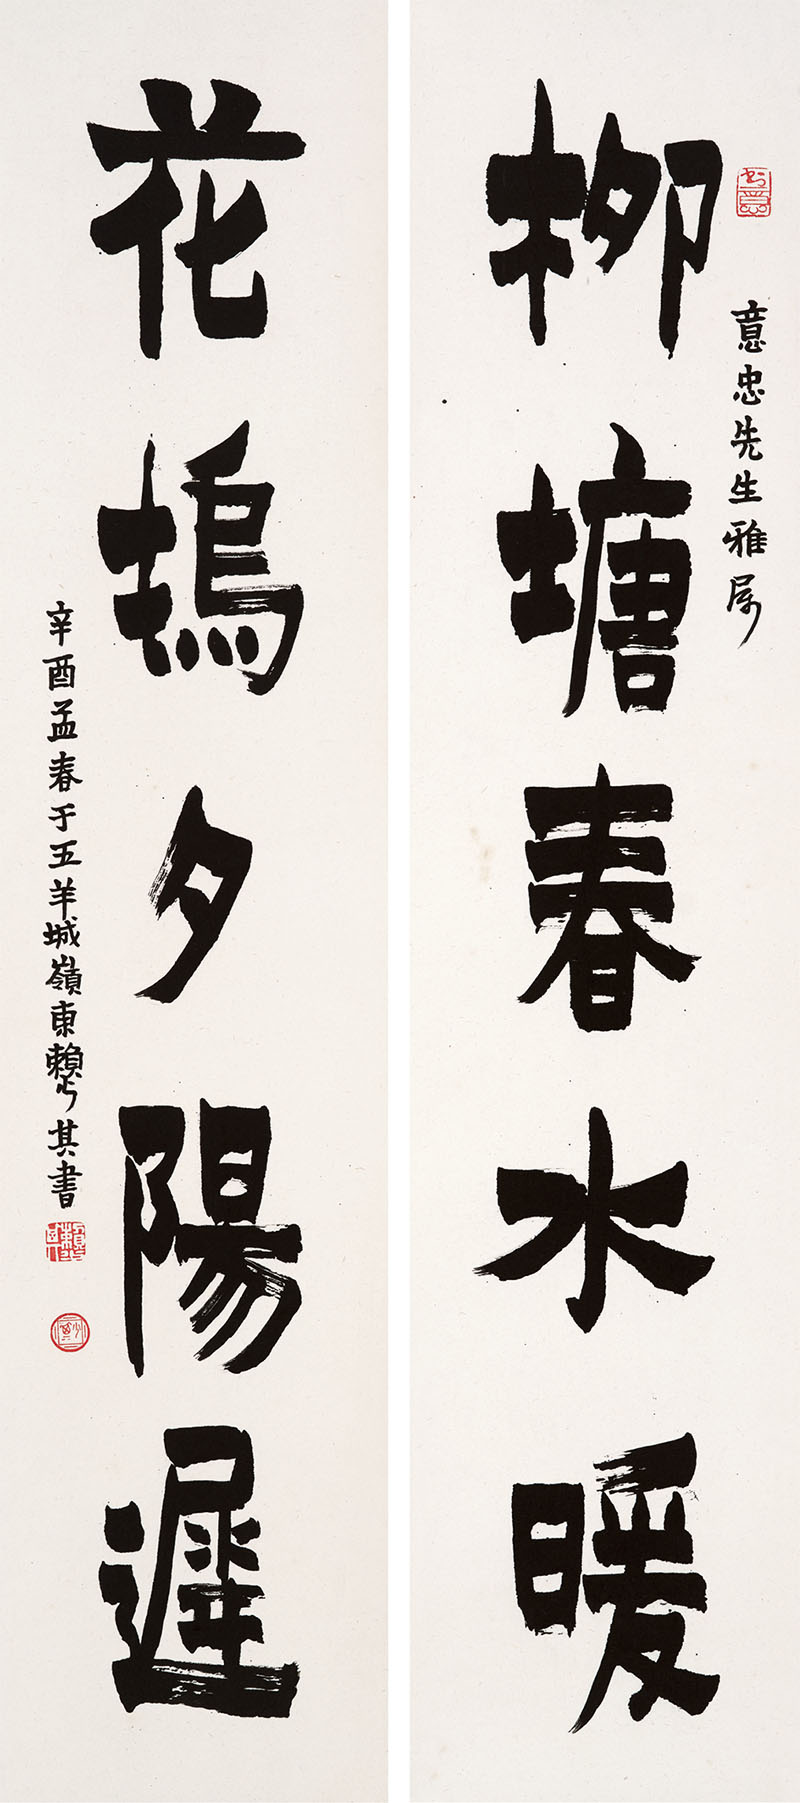 柳塘春水暖
意忠先生雅属
花塢夕陽遲
辛酉孟春于五羊城嶺東賴少其書